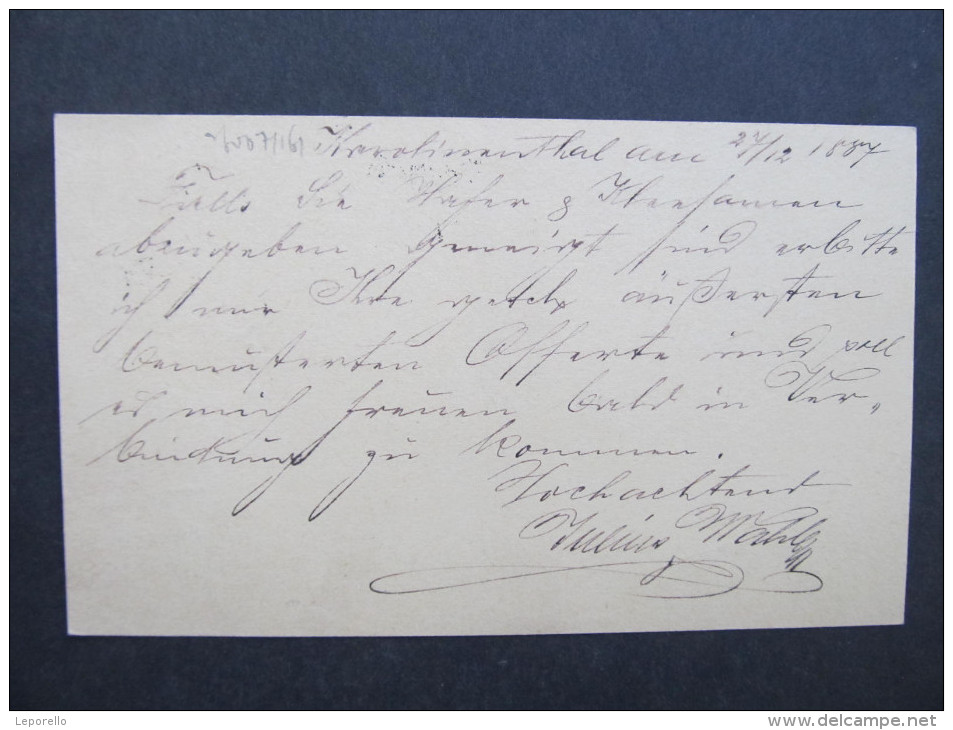 Karolinenthal am 27/12 1887
Falls Sie Hafer & Kleesamen
abzugeben geneigt sind erbitte
ich nur Ihre äußersten
bemusterten Offerte und soll
es mich freuen bald in Ver-
bindung zu kommen.
Hochachtend
Julius
Leporello
www.delcampe.net